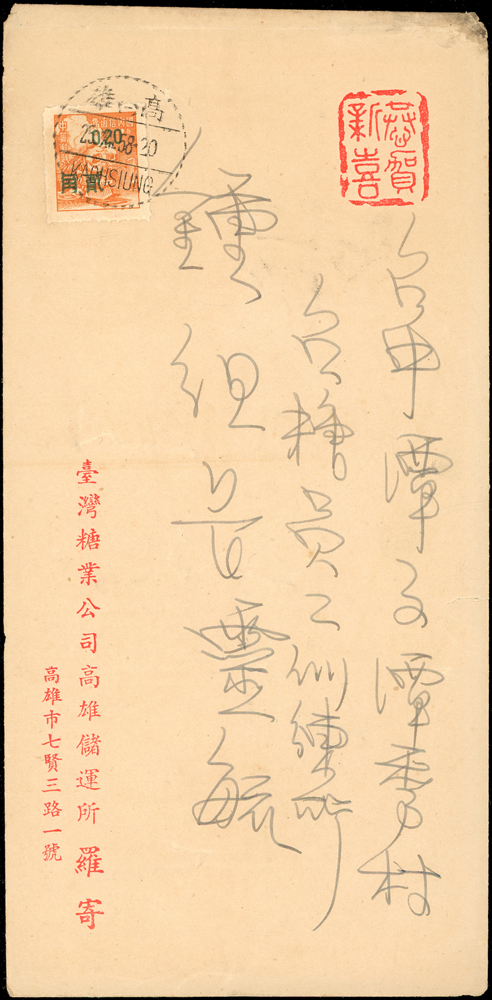 恭賀
新喜
台中潭子潭秀村
台糖員工訓練所
鍾組長靈毓
高雄
KAOHSIUNG
0.20
貳角
臺灣糖業公司高雄儲運所 羅寄
高雄市七賢三路一號